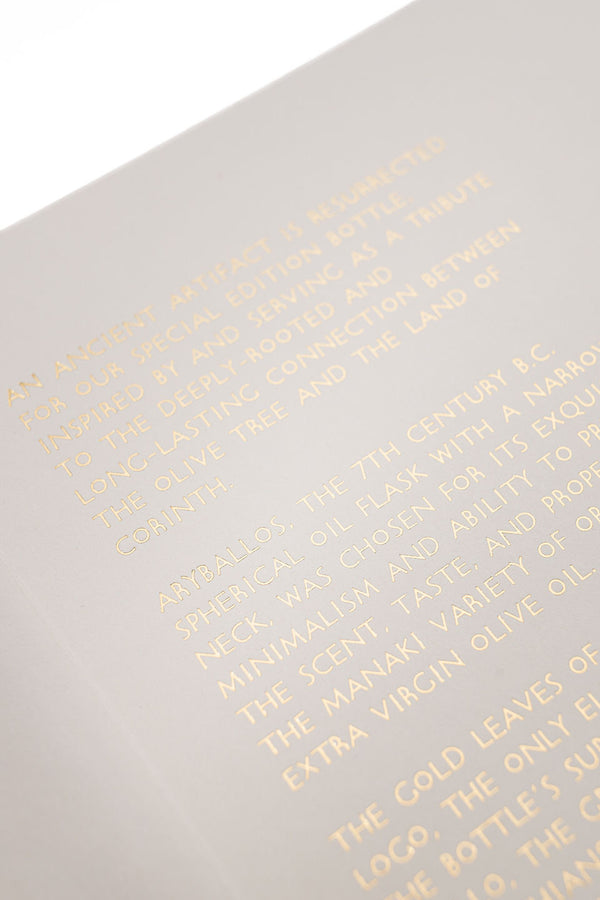 AN ANCIENT ARTIFACT IS RESURRECTED
FOR OUR SPECIAL EDITION BOTTLE.
INSPIRED BY AND SERVING AS A TRIBUTE
TO THE DEEPLY-ROOTED AND
LONG-LASTING CONNECTION BETWEEN
THE OLIVE TREE AND THE LAND OF
CORINTH.
ARYBALLOS, THE 7TH CENTURY B.C.
SPHERICAL OIL FLASK WITH A NARROW
NECK, WAS CHOSEN FOR ITS
MINIMALISM AND ABILITY TO
THE SCENT, TASTE, AND
THE MANAKI VARIETY OF
EXTRA VIRGIN OLIVE OIL.
THE GOLD LEAVES OF
LOGO, THE ONLY
THE BOTTLE'S
THE